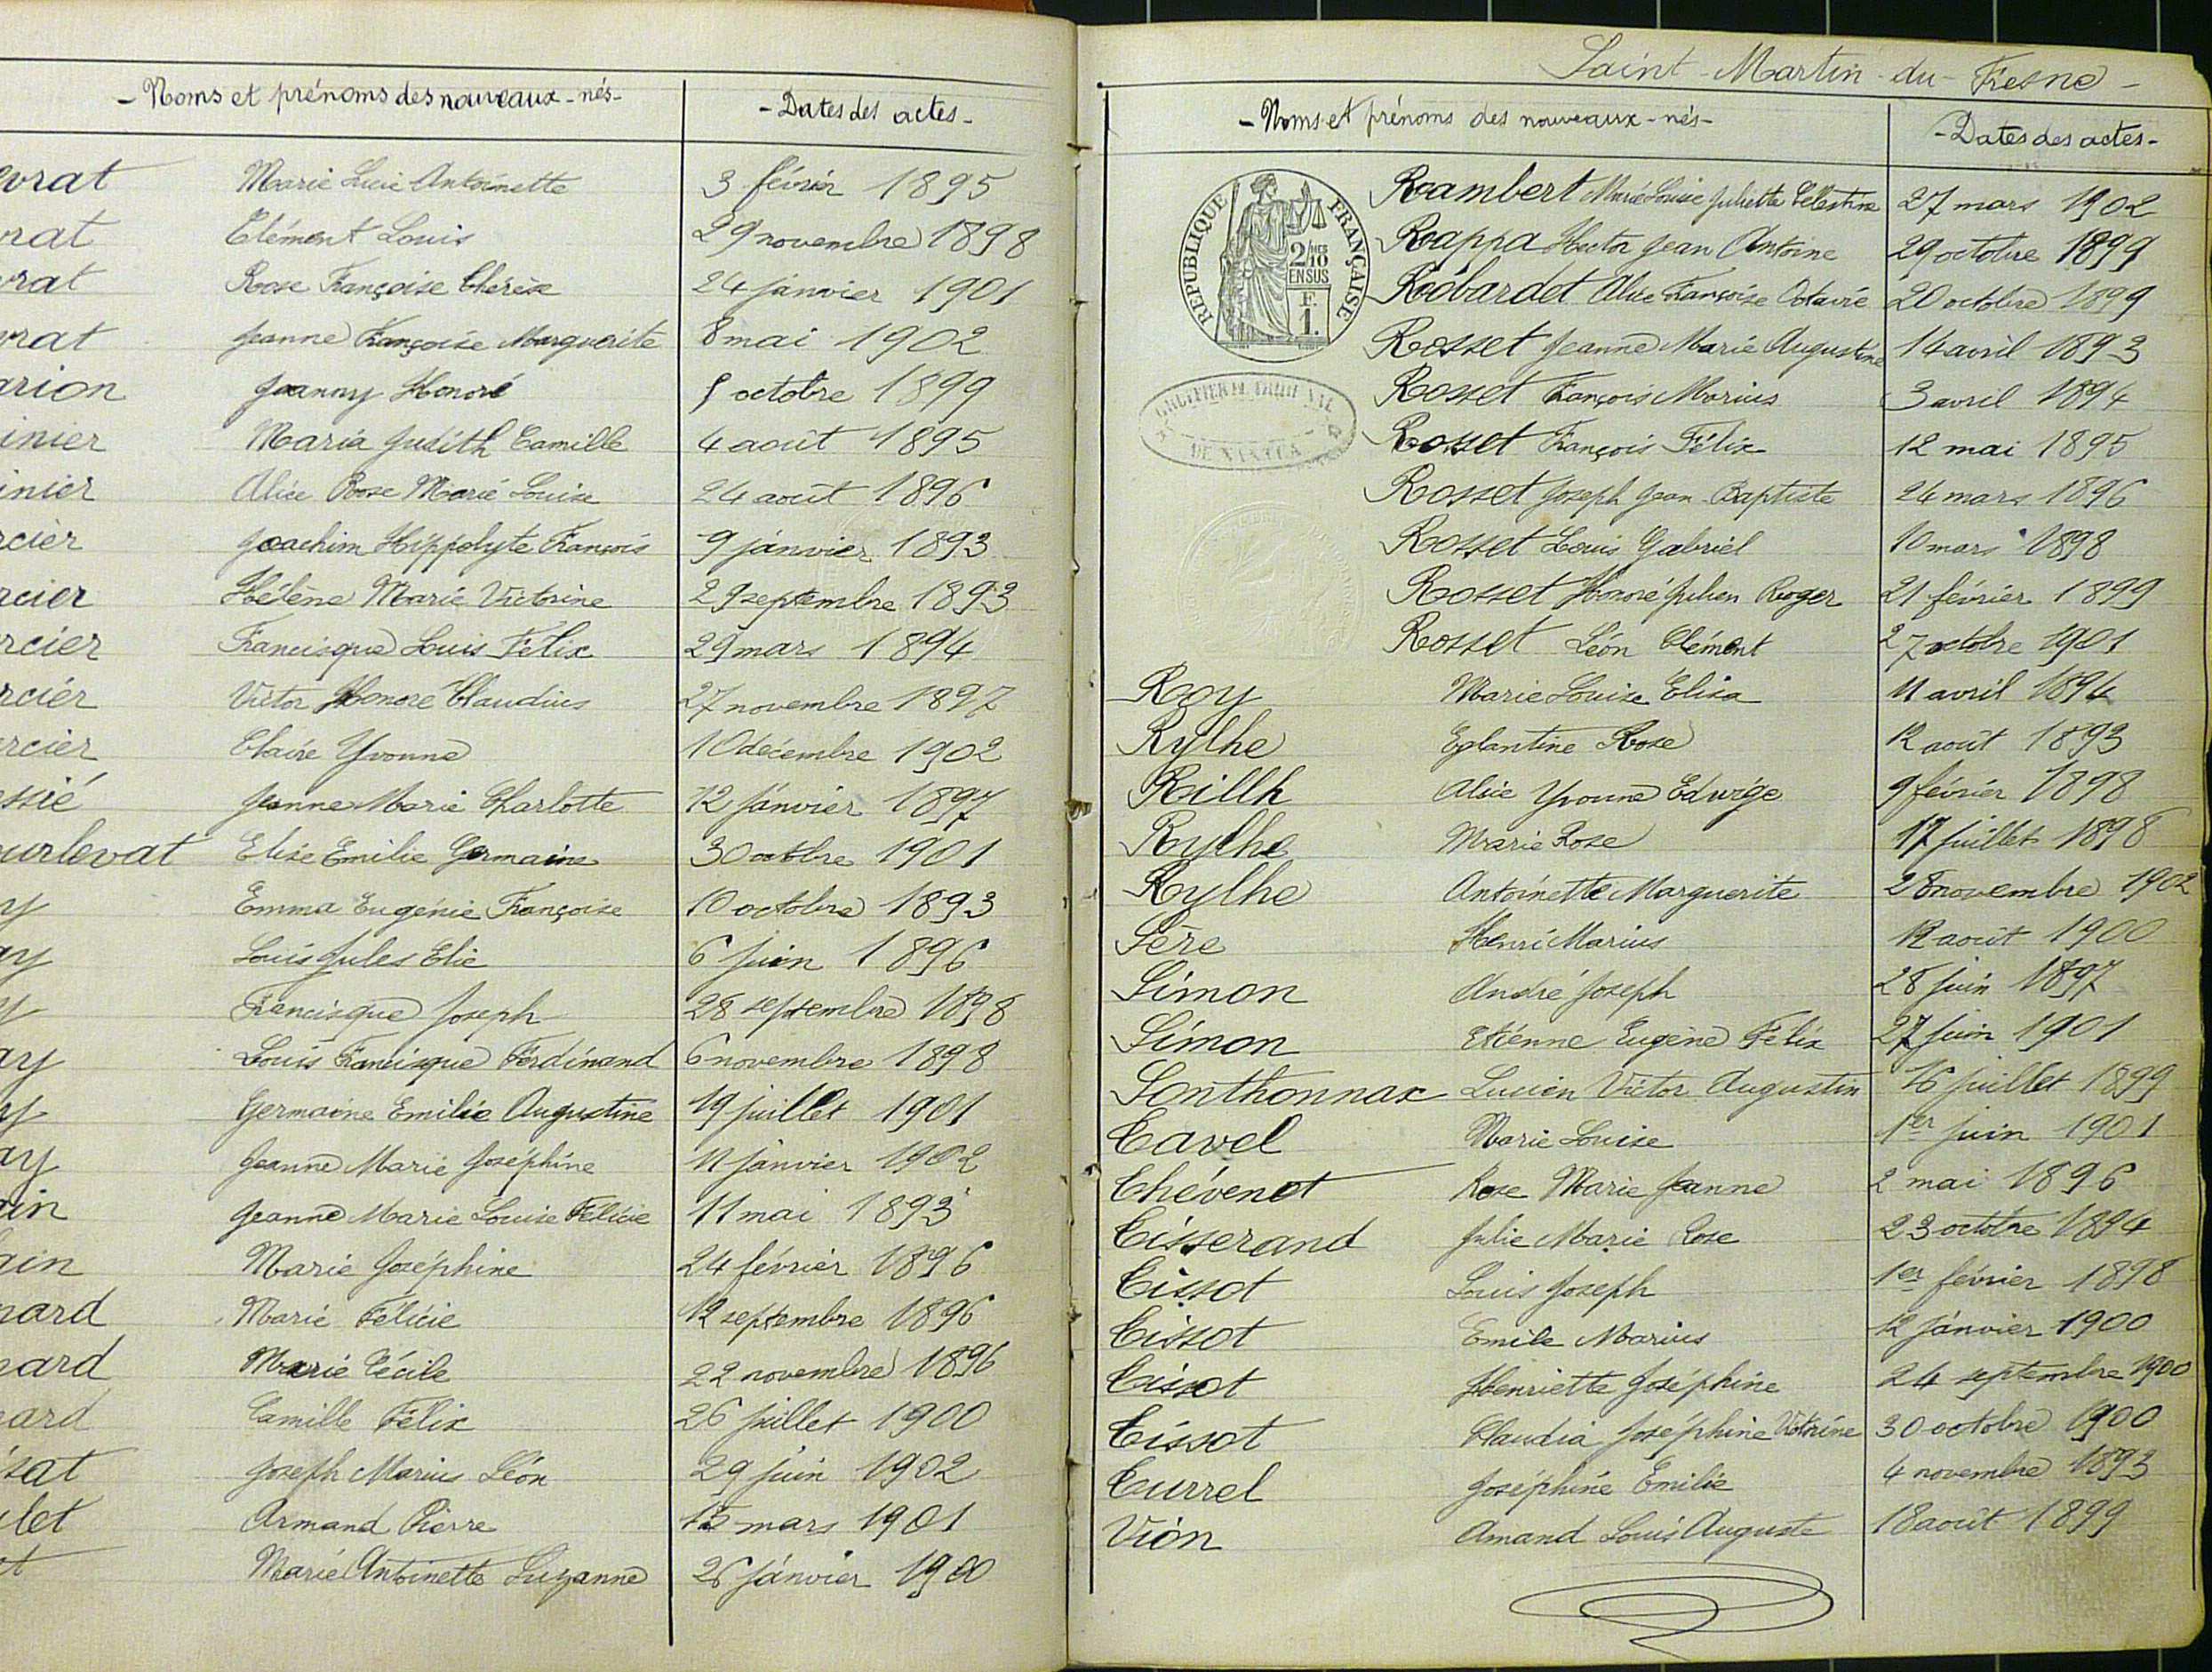 - Noms et prénoms des nouveaux-nés -
- Dates des actes -
vrat Marie Lucie Antoinette 3 février 1895
rat Clément Louis 29 novembre 1898
rat Rose Françoise Thérèse 24 janvier 1901
rat Jeanne Françoise Marguerite 8 mai 1902
rion Jeanny Honoré octobre 1899
inier Maria Judith Camille 4 août 1895
inier Alice Rose Marie Louise 24 août 1896
rcier Joachim Hippolyte François 9 janvier 1893
rcier Hélène Marie Victorine 29 septembre 1893
rcier Francisque Louis Félix 29 mars 1894
rcier Victor Honoré Claudius 27 novembre 1897
rcier Claire Yvonne 10 décembre 1902
ssié Jeanne Marie Charlotte 12 janvier 1897
urlevat Elise Emilie Germaine 30 octobre 1901
y Emma Eugénie Françoise 10 octobre 1893
ay Louis Jules Elie 6 juin 1896
y Francisque Joseph 28 septembre 1898
ay Louis Francisque Ferdinand 6 novembre 1898
ay Germaine Emilie Augustine 19 juillet 1901
ay Jeanne Marie Joséphine 11 janvier 1902
in Jeanne Marie Louise Félicie 11 mai 1893
ain Marie Joséphine 24 février 1896
nard Marie Félicie 12 septembre 1896
nard Marie Cécile 22 novembre 1896
nard Camille Félix 26 juillet 1900
sat Joseph Marius Léon 29 juin 1902
let Armand Pierre mars 1901
t Marie Antoinette Suzanne 26 janvier 1900
Saint-Martin-du-Fresne -
- Noms et prénoms des nouveaux-nés -
- Dates des actes -
REPUBLIQUE FRANÇAISE
2/10 EN SUS
F. 1.
DE NANTUA
Rambert Marie Louise Juliette Célestine 27 mars 1902
Rappa Hector Jean Antoine 29 octobre 1899
Robardet Alice Françoise Octavie 20 octobre 1899
Rosset Jeanne Marie Augustine 14 avril 1893
Rosset François Marius 3 avril 1894
Rosset François Félix 12 mai 1895
Rosset Joseph Jean-Baptiste 24 mars 1896
Rosset Louis Gabriel 10 mars 1898
Rosset Honoré Julien Roger 21 février 1899
Rosset Léon Clément 27 octobre 1901
Roy Marie Louise Elisa 11 avril 1894
Rylhe Eglantine Rose 12 août 1893
Rillh Alice Yvonne Edwige 9 février 1898
Rylhe Marie Rose 17 juillet 1898
Rylhe Antoinette Marguerite 28 novembre 1902
Sère Henri Marius 12 août 1900
Simon André Joseph 28 juin 1897
Simon Etienne Eugène Félix 27 juin 1901
Sonthonnax Lucien Victor Augustin 16 juillet 1899
Tavel Marie Louise 1er juin 1901
Thévenot Rose Marie Jeanne 2 mai 1896
Tisserand Julie Marie Rose 23 octobre 1894
Tissot Louis Joseph 1er février 1898
Tissot Emile Marius 12 janvier 1900
Tissot Henriette Joséphine 24 septembre 1900
Tissot Claudia Joséphine Victorine 30 octobre 1900
Turrel Joséphine Emilie 4 novembre 1893
Vion Amand Louis Auguste 18 août 1899